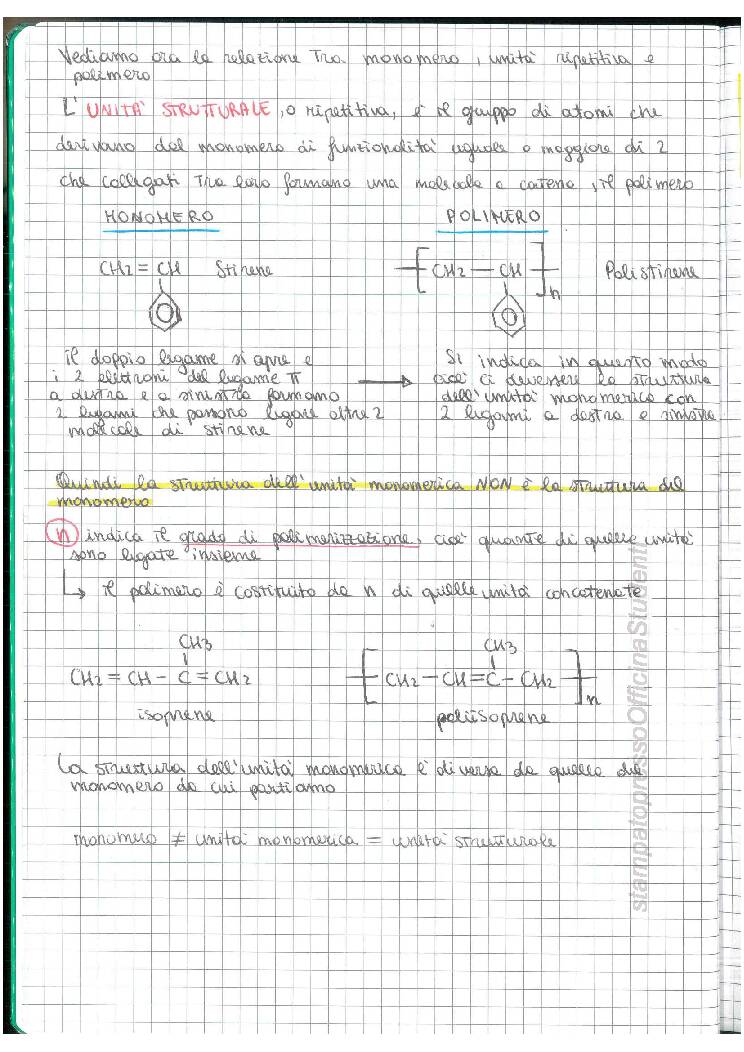 Vediamo ora la relazione tra monomero, unità ripetitiva e
polimero
L'UNITÀ STRUTTURALE, o ripetitiva, è il gruppo di atomi che
derivano dal monomero di funzionalità uguale o maggiore di 2
che collegati tra loro formano una molecola a catena, il polimero
MONOMERO POLIMERO
CH2 = CH Stirene [ CH2 — CH ]n Polistirene
il doppio legame si apre e
i 2 elettroni del legame π
a destra e a sinistra formano
2 legami che possono legare altre 2
molecole di stirene
Si indica in questo modo
cioè ci dev'essere la struttura
dell'unità monomerica con
2 legami a destra e sinistra
Quindi la struttura dell'unità monomerica NON è la struttura del
monomero
n indica il grado di polimerizzazione, cioè quante di quelle unità
sono legate insieme
↳ il polimero è costituito da n di quelle unità concatenate
CH3 CH3
CH2 = CH - C = CH2 [ CH2 — CH = C - CH2 ]n
isoprene poliisoprene
La struttura dell'unità monomerica è diversa da quella del
monomero da cui partiamo
monomero ≠ unità monomerica = unità strutturale
stampatopressoOfficinaStudenti